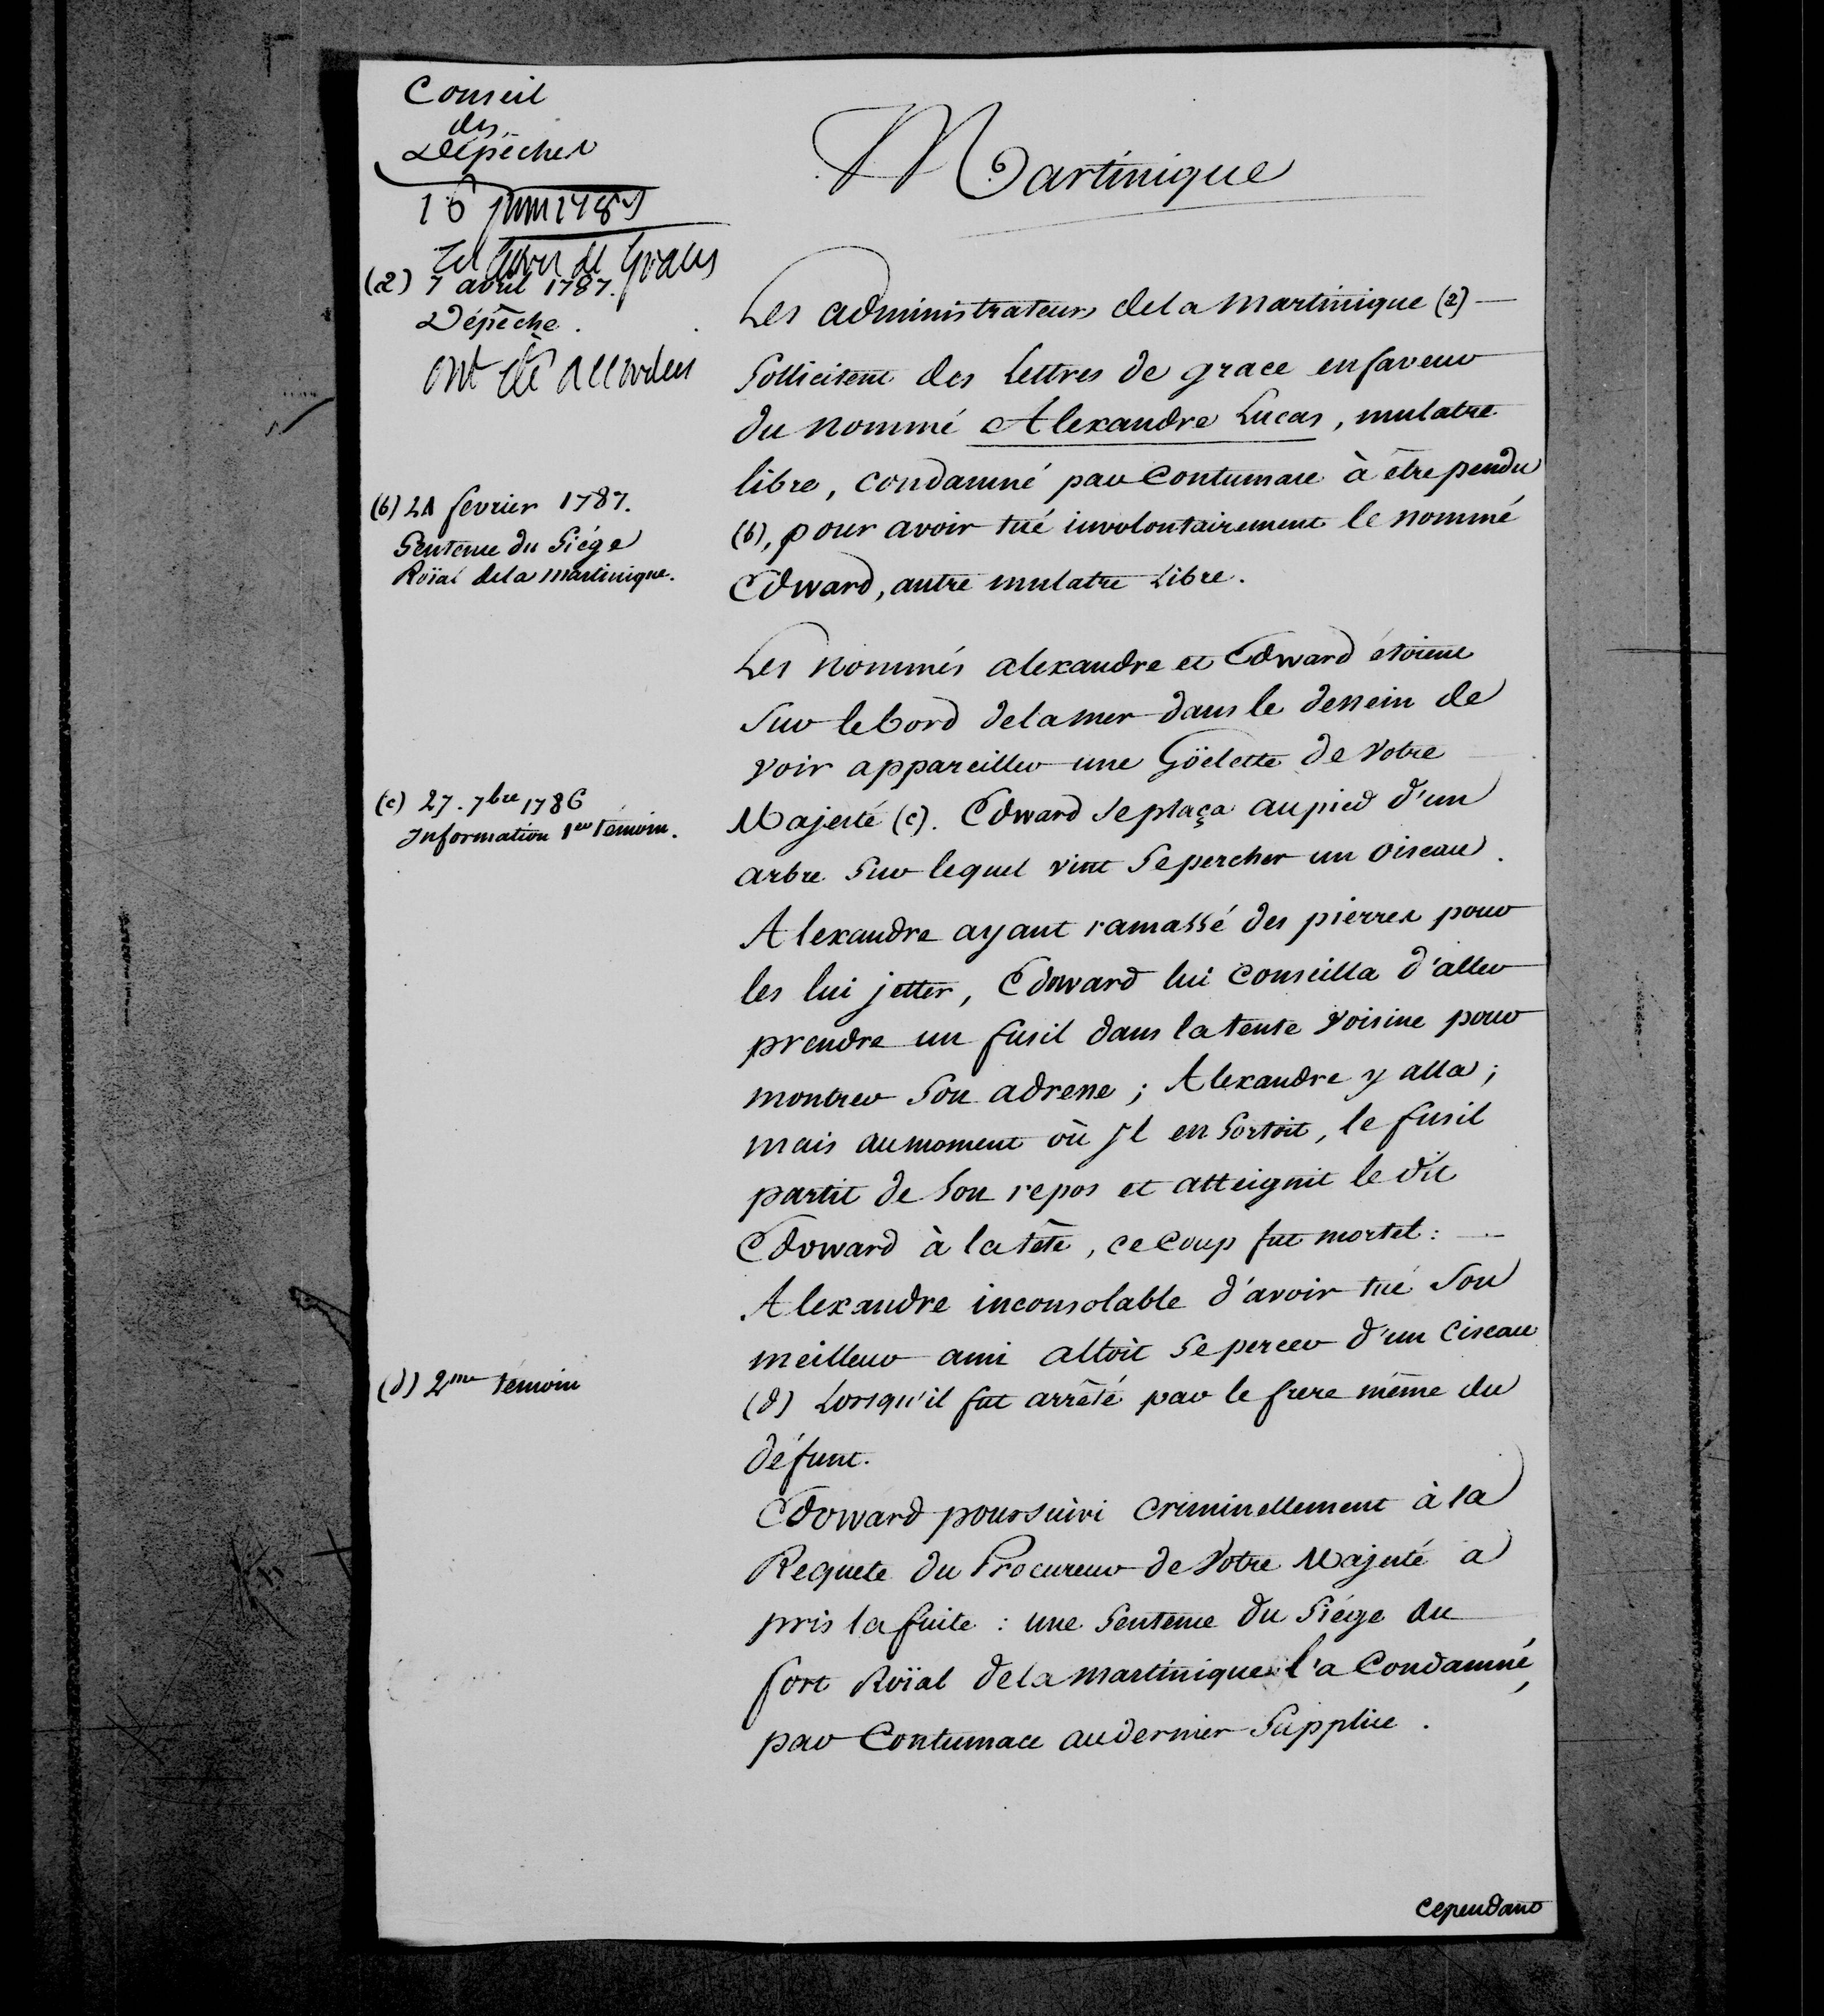 Conseil
des
Dépêches
16 juin 1787
les lettres de Graces
(a) 7 avril 1787.
Dépêche.
ont été accordées
(b) 21 fevrier 1787.
Sentence du Siége
Roïal de la Martinique.
(c) 27. 7bre 1786
Information 1er témoin.
(d) 2me témoin
Martinique
Les administrateurs de la Martinique (a)
Sollicitent des Lettres de grace en faveur
du nommé Alexandre Lucas, mulatre
libre, condamné par Contumace à être pendu
(b), pour avoir tué involontairement le nommé
Edward, autre mulatre Libre.
Les nommés alexandre et Edward étoient
Sur le bord de la mer dans le dessein de
voir appareiller une Goëlette de Votre
Majesté (c). Edward se plaça au pied d'un
arbre Sur lequel vint Se percher un Oiseau.
Alexandre ayant ramassé des pierres pour
les lui jetter, Edoward lui Conseilla d'aller
prendre un fusil dans la tente Voisine pour
montrer Son adresse ; Alexandre y alla ;
mais au moment où Il en Sortoit, le fusil
partit de Son repos et atteignit le dit
Edoward à la tête, ce Coup fut mortel :
Alexandre inconsolable d'avoir tué Son
meilleur ami alloit Se percer d'un Ciseau
(d) Lorsqu'il fut arrêté par le frere même du
défunt.
Edoward poursuivi Criminellement à la
Requete du Procureur de Votre Majesté a
pris la fuite : une Sentence du Siége du
fort Roïal de la Martinique l'a Condamné,
par Contumace au dernier Supplice.
Cependant